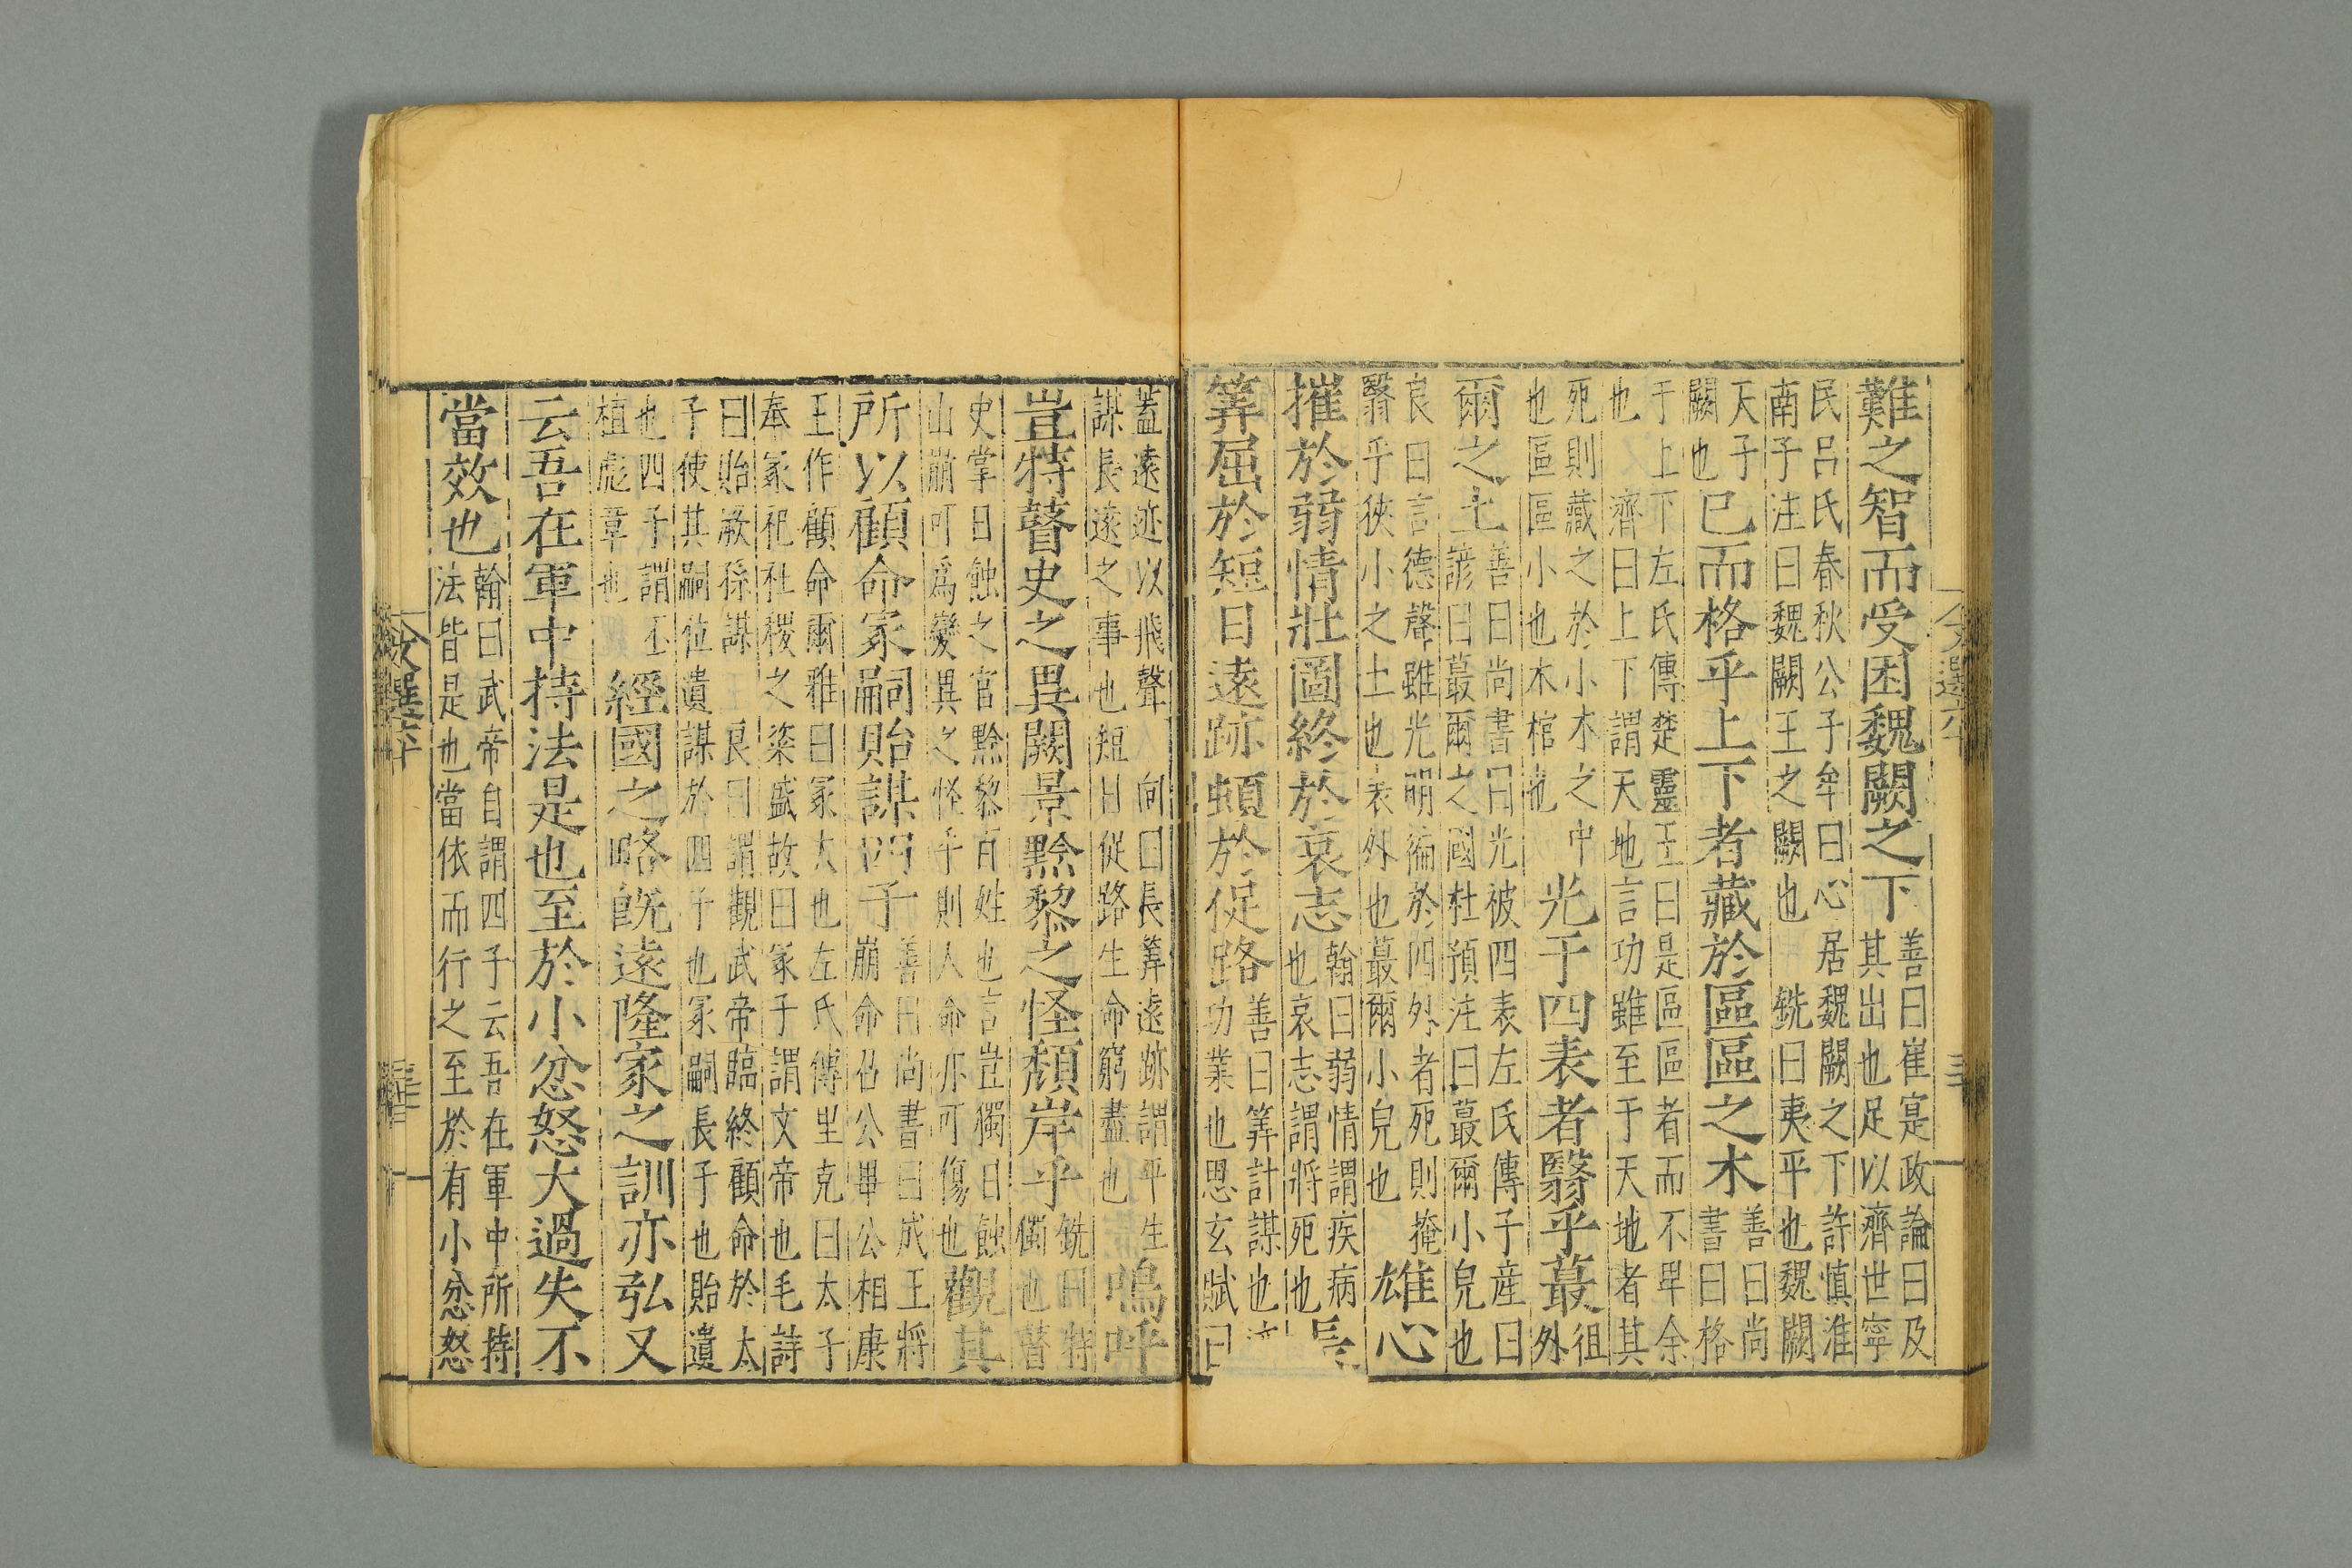 難之智而受困魏闕之下善曰崔寔政論曰及
其出也足以濟世寧
民呂氏春秋公子牟曰心居魏闕之下許慎淮
南子注曰魏闕王之闕也銑曰夷平也魏闕
天子
闕也已而格乎上下者藏於區區之木善曰尚
書曰格
于上下左氏傳楚靈王曰是區區者而不畀余
也濟曰上下謂天地言功雖至于天地者其
死則藏之於小木之中
也區區小也木棺也光于四表者翳乎蕞徂
外
爾之土善曰尚書曰光被四表左氏傳子產曰
諺曰蕞爾之國杜預注曰蕞爾小皃也
良曰言德聲雖光明徧於四外者死則掩
翳乎狹小之土也表外也蕞爾小皃也雄心
摧於弱情壯圖終於哀志翰曰弱情謂疾病
也哀志謂將死也長
筭屈於短日遠跡頓於促路善曰筭計謀也
功業也思玄賦曰
蓋遠迹以飛聲向曰長筭遠跡謂平生
謀長遠之事也短日促路生命窮盡也嗚呼
豈特瞽史之異闕景黔黎之怪頹岸乎銑曰特
獨也瞽
史掌日蝕之官黔黎百姓也言豈獨日蝕
山崩可爲變異之怪乎則人命亦可傷也觀其
所以顧命冢嗣貽謀四子善曰尚書曰成王將
崩命召公畢公相康
王作顧命爾雅曰冢大也左氏傳里克曰太子
奉冢祀社稷之粢盛故曰冢子謂文帝也毛詩
曰貽厥孫謀良曰謂觀武帝臨終顧命於太
子使其嗣位遺謀於四子也冢嗣長子也貽遺
也四子謂丕
植彪章也經國之略旣遠隆家之訓亦弘又
云吾在軍中持法是也至於小忿怒大過失不
當效也翰曰武帝自謂四子云吾在軍中所持
法皆是也當依而行之至於有小忿怒